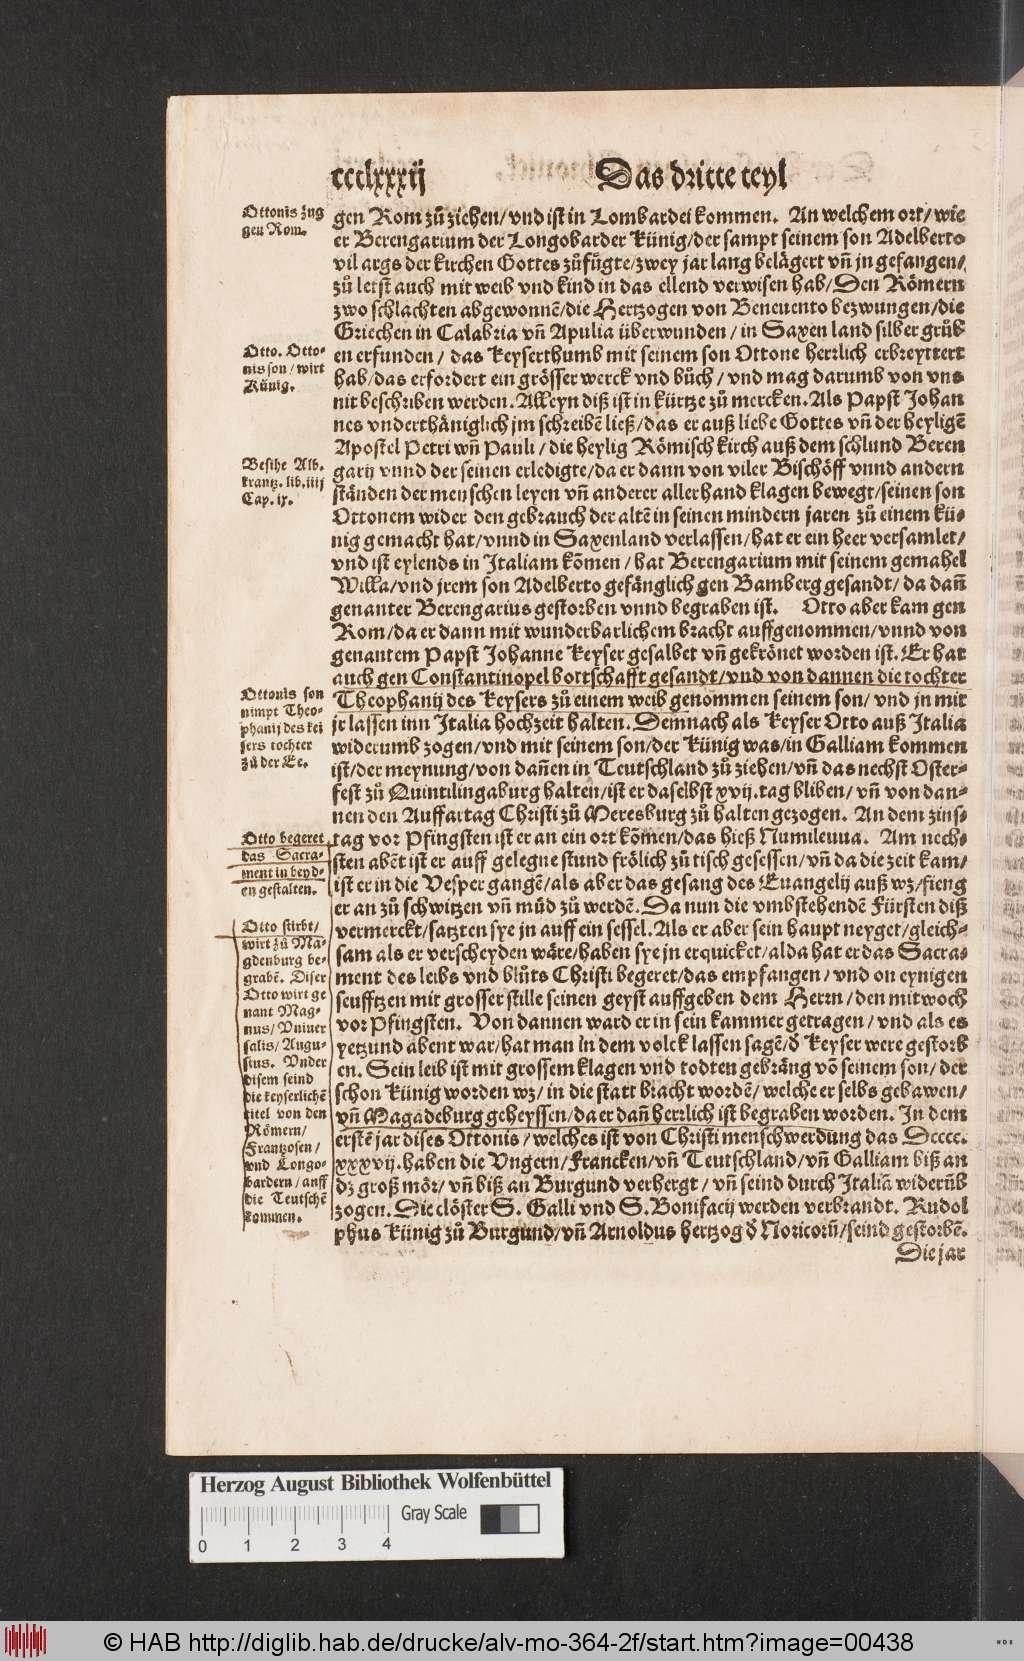 ccclxxxij Das dritte teyl
Ottonis zug
gen Rom.
gen Rom zů ziehen/ vnd ist in Lombardei kommen. An welchem ort/ wie
er Berengarium der Longobarder Künig/ der sampt seinem son Adelberto
vil args der kirchen Gottes zůfügte/ zwey jar lang belägert vñ jn gefangen/
zů letst auch mit weib vnd kind in das ellend verwisen hab/ Den Römern
zwo schlachten abgewonnē/ die Hertzogen von Beneuento bezwungen/ die
Griechen in Calabria vñ Apulia überwunden/ in Saxen land silber grůb
Otto. Otto-
nis son/ wirt
Künig.
en erfunden/ das Keyserthumb mit seinem son Ottone herrlich erbreyttert
hab/ das erfordert ein grösser werck vnd bůch/ vnd mag darumb von vns
nit beschriben werden. Alleyn diß ist in kürtze zů mercken. Als Papst Johan
nes vnderthäniglich jm schreibē ließ/ das er auß liebe Gottes vñ der heyligē
Apostel Petri wñ Pauli/ die heylig Römisch kirch auß dem schlund Beren
Besihe Alb.
krantz. lib. iiij
Cap. ix.
garij vnnd der seinen erledigte/ da er dann von viler Bischöff vnnd andern
ständen der menschen leyen vñ anderer allerhand klagen bewegt/ seinen son
Ottonem wider den gebrauch der altē in seinen mindern jaren zů einem kü-
nig gemacht hat/ vnnd in Saxenland verlassen/ hat er ein heer versamlet/
vnd ist eylends in Italiam kōmen/ hat Berengarium mit seinem gemahel
Willa/ vnd jrem son Adelberto gefänglich gen Bamberg gesandt/ da dañ
genanter Berengarius gestorben vnnd begraben ist. Otto aber kam gen
Rom/ da er dann mit wunderbarlichem bracht auffgenommen/ vnnd von
genantem Papst Johanne Keyser gesalbet vñ gekrönet worden ist. Er hat
auch gen Constantinopel bottschafft gesandt/ vnd von dannen die tochter
Ottonis son
nimpt Theo-
phanij des kei
sers tochter
zů der Ee.
Theophanij des Keysers zů einem weib genommen seinem son/ vnd jn mit
jr lassen inn Italia hochzeit halten. Demnach als Keyser Otto auß Italia
widerumb zogen/ vnd mit seinem son/ der Künig was/ in Galliam kommen
ist/ der meynung/ von dañen in Teutschland zů ziehen/ vñ das nechst Oster-
fest zů Quintilingaburg halten/ ist er daselbst xvij. tag bliben/ vñ von dan-
nen den Auffartag Christi zů Meresburg zů halten gezogen. An dem zins-
Otto begeret
das Sacra-
ment in beyd-
en gestalten.
tag vor Pfingsten ist er an ein ort kōmen/ das hieß Numileuua. Am nech-
sten abēt ist er auff gelegne stund frölich zů tisch gesessen/ vñ da die zeit kam/
ist er in die Vesper gangē/ als aber das gesang des Euangelij auß wz/ fieng
er an zů schwitzen vñ müd zů werdē. Da nun die vmbstehendē Fürsten diß
Otto stirbt/
wirt zů Ma-
gdenburg be-
grabē. Diser
Otto wirt ge
nant Mag-
nus/ Vniuer
salis/ Augu-
stus. Vnder
disem seind
die keyserlichē
titel von den
Römern/
Frantzosen/
vnd Longo-
bardern/ auff
die Teutschē
kommen.
vermerckt/ satzten sye jn auff ein sessel. Als er aber sein haupt neyget/ gleich-
sam als er verscheyden wäre/ haben sye jn erquicket/ alda hat er das Sacra-
ment des leibs vnd blůts Christi begeret/ das empfangen/ vnd on eynigen
seufftzen mit grosser stille seinen geyst auffgeben dem Herrn/ den mitwoch
vor Pfingsten. Von dannen ward er in sein kammer getragen/ vnd als es
yetzund abent war/ hat man in dem volck lassen sagē/ d̕ Keyser were gestorb
en. Sein leib ist mit grossem klagen vnd todten gebräng vō seinem son/ der
schon Künig worden wz/ in die statt bracht wordē/ welche er selbs gebawen/
vñ Magadeburg geheyssen/ da er dañ herrlich ist begraben worden. In dem
erstē jar dises Ottonis/ welches ist von Christi menschwerdung das Dcccc.
xxxvij. haben die Vngern/ Francken/ vñ Teutschland/ vñ Galliam biß an
dz groß mör/ vñ biß an Burgund verhergt/ vñ seind durch Italiā widerūb
zogen. Die clöster S. Galli vnd S. Bonifacij werden verbrandt. Rudol
phus Künig zů Burgund/ vñ Arnoldus hertzog d̕ Noricorū/ seind gestorbē.
Die jar
Herzog August Bibliothek Wolfenbüttel
Gray Scale
0 1 2 3 4
© HAB http://diglib.hab.de/drucke/alv-mo-364-2f/start.htm?image=00438